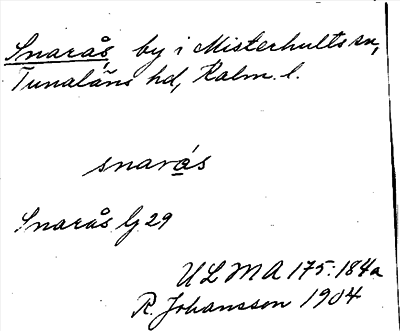 Snarås by i Misterhults sn,
Tunaläns hd, Kalm. l.
snarås
Snarås lj 29
ULMA 175:184a
R. Johansson 1904